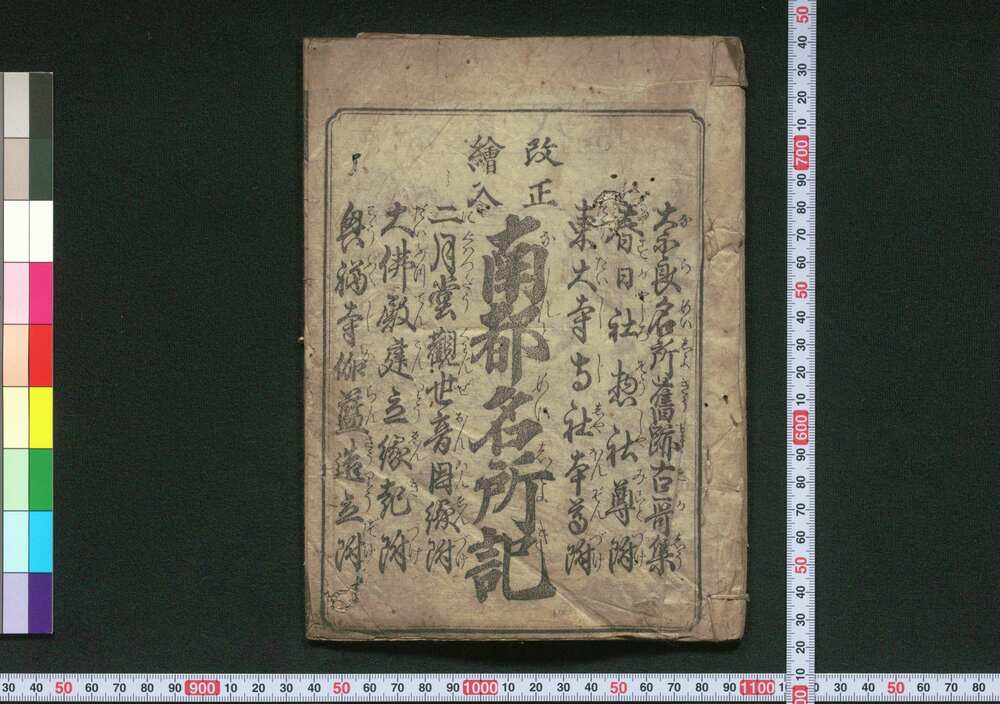 奈良名所舊跡古哥集
春日社惣社尊附
東大寺寺社本尊附
改正
繪入
南都名所記
二月堂觀世音因縁附
大佛殿建立縁起附
興福寺伽藍造立附
30 40 50 60 70 80 90 900 10 20 30 40 50 60 70 80 90 1000 10 20 30 40 50 60 70 80 90 1100 10 20 30 40 50 60 70 80
50 40 30 20 10 700 90 80 70 60 50 40 30 20 10 600 90 80 70 60 50 40 30 20 10